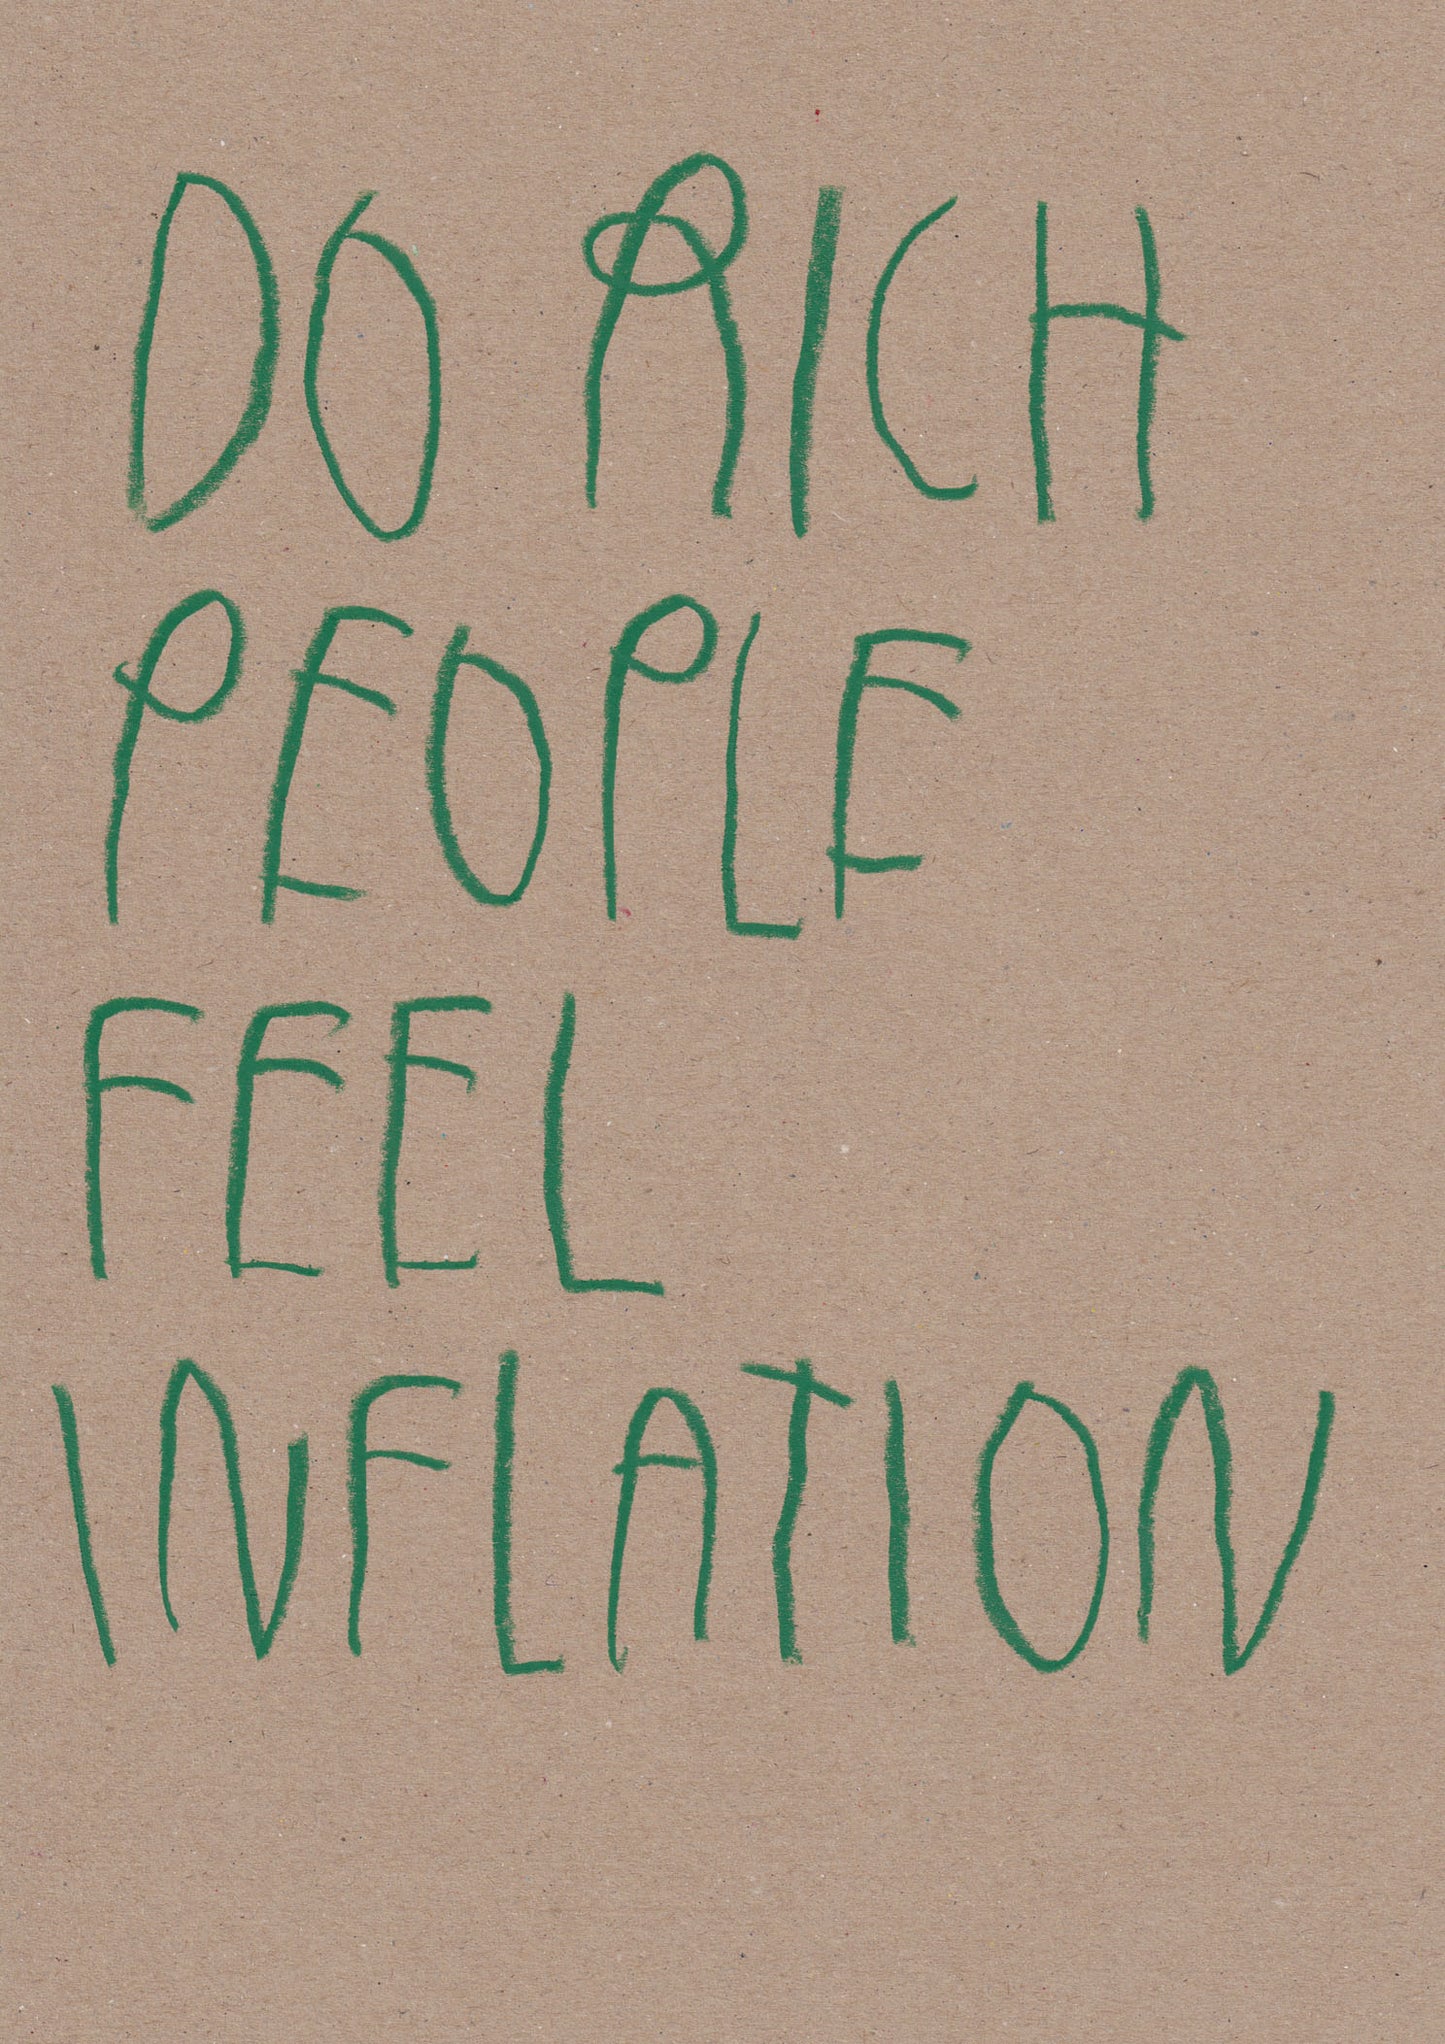 DO RICH
PEOPLE
FEEL
INFLATION